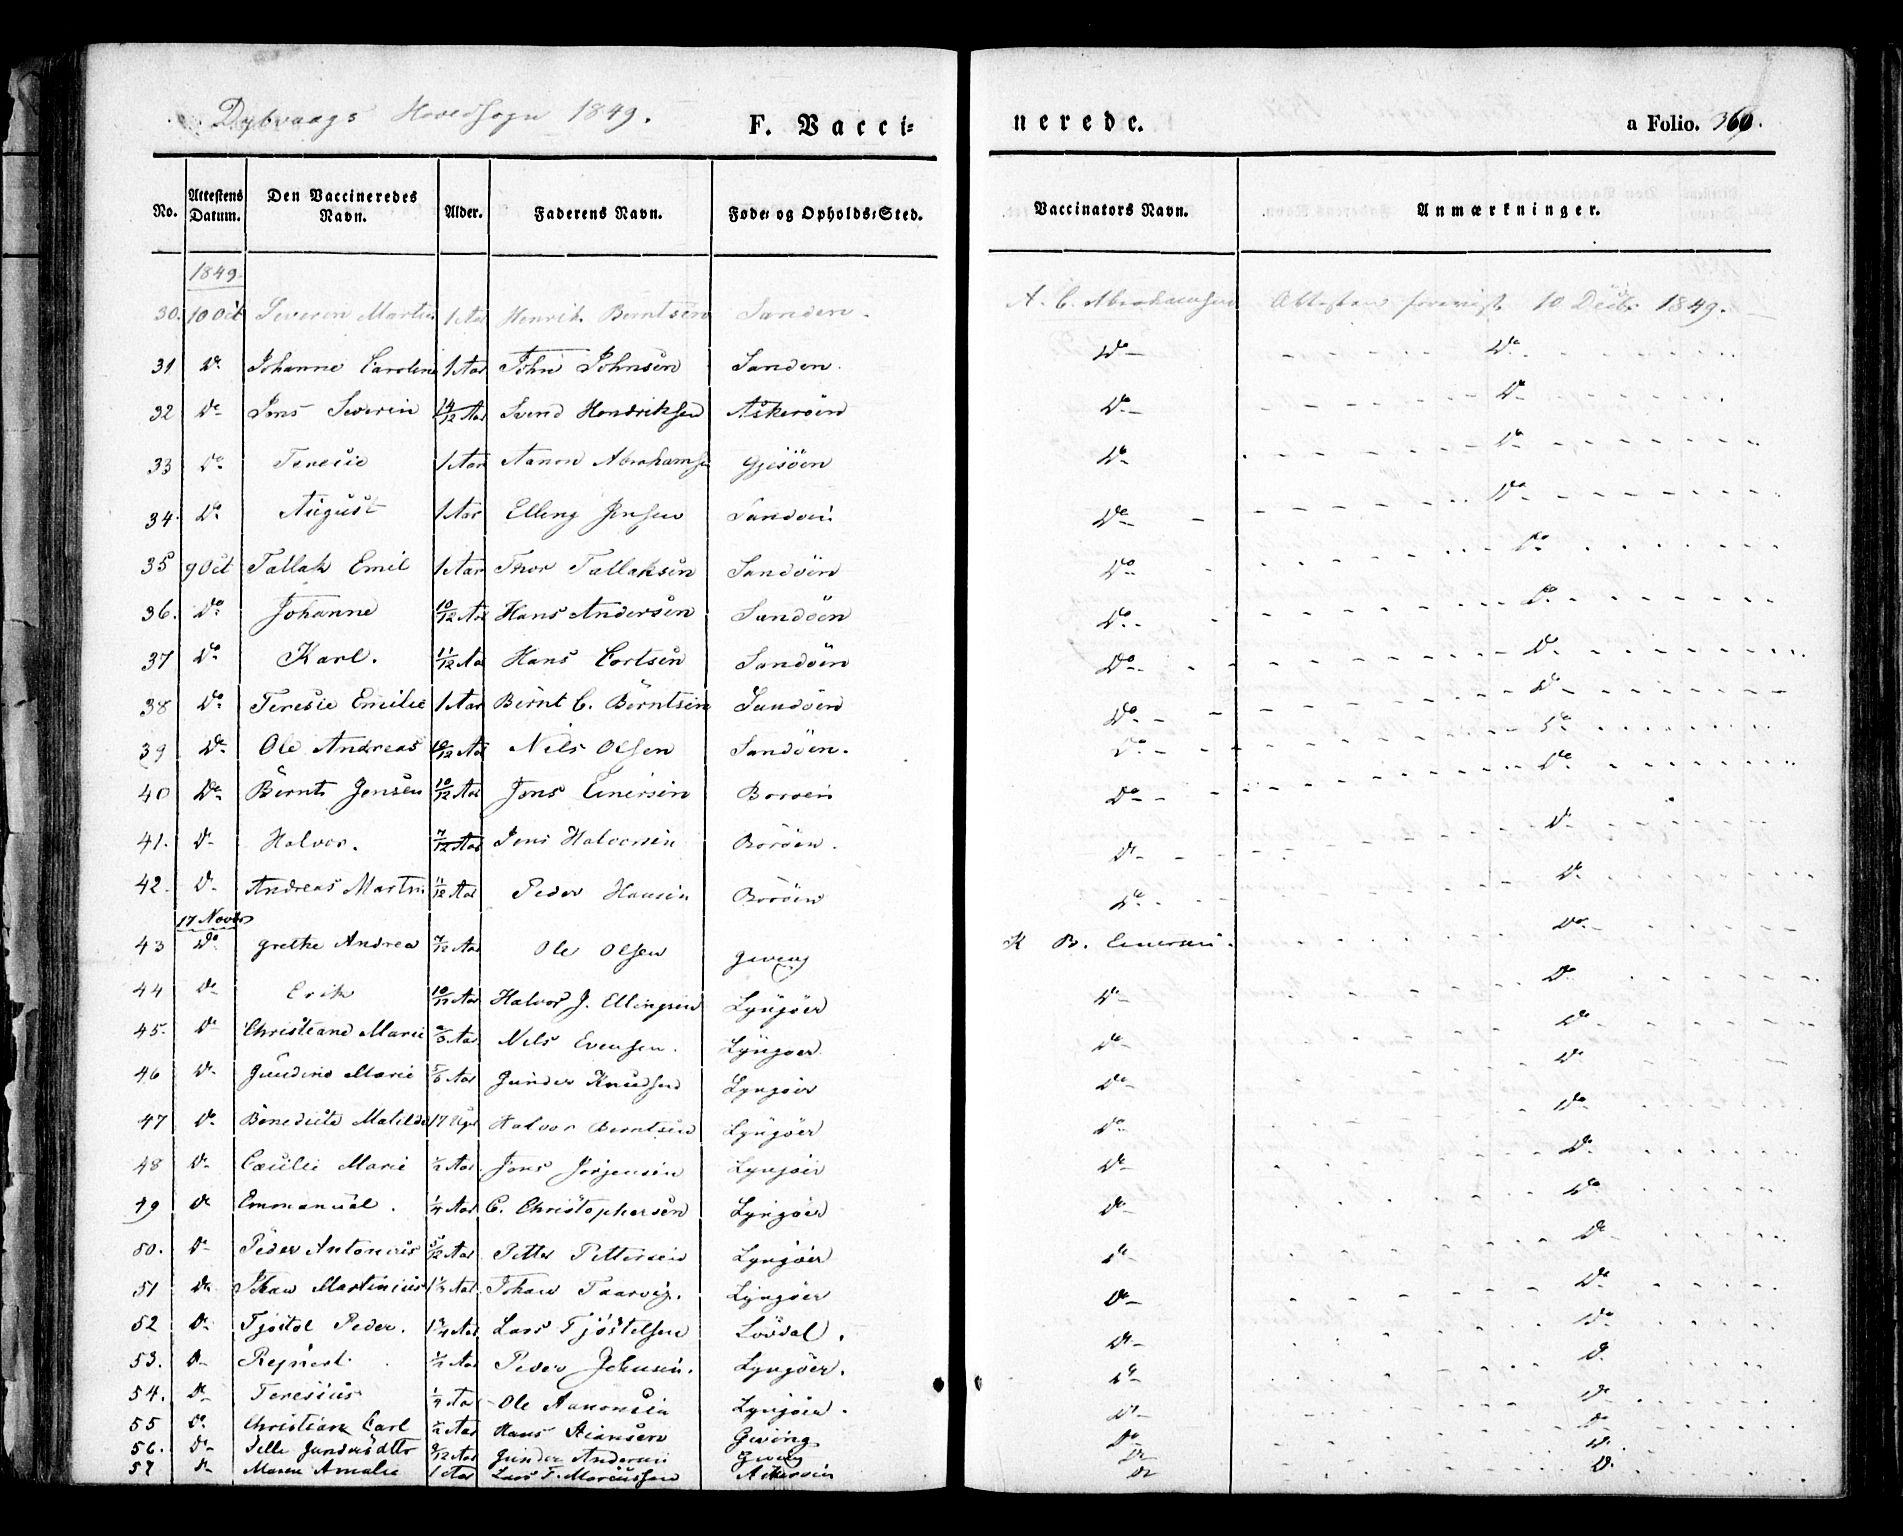 Dybvaags Hovedsogn 1849.
F. Vacci=
nerede.
a Folio. 360.
No. Attestens Datum. Den Vaccineredes Navn. Alder. Faderens Navn. Føde= og Opholds=Sted. Vaccinators Navn. Anmærkninger.
1849
30. 10 Oct Severin Martin 1 Aar Henrik Berntsen Sanden. A. C. Abrahamsen Attesten foreviist 10 Decbr 1849.
31 Do Johanne Caroline 1 Aar John Johnsen Sanden. Do Do
32 Do Jens Severin 14/12 Aar Svend Hendriksen Askerøen Do Do
33 Do Teresie 1 Aar Aanon Abrahamsen Gjesøen Do Do
34. Do August 1 Aar Elling Jensen Sandøen Do Do
35 9 Oct Tallak Emil 1 Aar Thor Tallaksen Sandøen Do Do
36. Do Johanne 10/12 Aar Hans Andersen Sandøen Do Do
37 Do Karl. 11/12 Aar Hans Cortsen Sandøen Do Do
38 Do Teresie Emilie 1 Aar Bernt C. Berntsen Sandøen Do Do
39 Do Ole Andreas 10/12 Aar Nils Olsen Sandøen. Do Do
40 Do Bernt Jensen 10/12 Aar Jens Einersen Borøen Do Do
41. Do Halvor. 7/12 Aar Jens Halvorsen Borøen. Do Do
42. Do Andreas Martin 11/12 Aar Peder Hansen Borøen Do Do
17 Novbr
43 Do Grethe Andrea 7/12 Aar Ole Olsen Gweng K B. Einersen. Do
44 Do Erik 10/12 Aar Halvor J. Ellingsen Lyngøer Do Do
45. Do Christiane Marie Aar Nils Evensen. Lyngøer Do Do
46 Do Gundine Marie Aar Gunder Knudsen Lyngøer Do Do
47 Do Benedicte Matilde 17 Uger Halvor Berntsen Lyngøer Do Do
48 Do Cæcilie Marie 1/2 Aar Jens Jørgensen Lyngøer Do Do
49 Do Emmanuel. 1/4 Aar C. Christophersen Lyngøer Do Do
50. Do Peder Antonius 5/12 Aar Petter Pettersen Lyngøer Do Do
51 Do Johan Martinius Aar Johan Taarvig. Lyngøer Do Do
52 Do Tjøstol Peder. Aar Lars Tjøstelsen Løvdal. Do Do
53. Do Reinert 1/2 Aar Peder Johnsen. Lyngøer. Do Do
54. Do Teresius Aar Ole Aanonsen Lyngøer. Do Do
55 Do Christian Carl 1/2 Aar Hans Gweng Do Do
56. Do Pelle Gundersdtter 9/12 Aar Gunder Andersen Gweng Do Do
57 Do Maren Amalie 1 Aar Lars T. Marcussen Askerøen Do Do